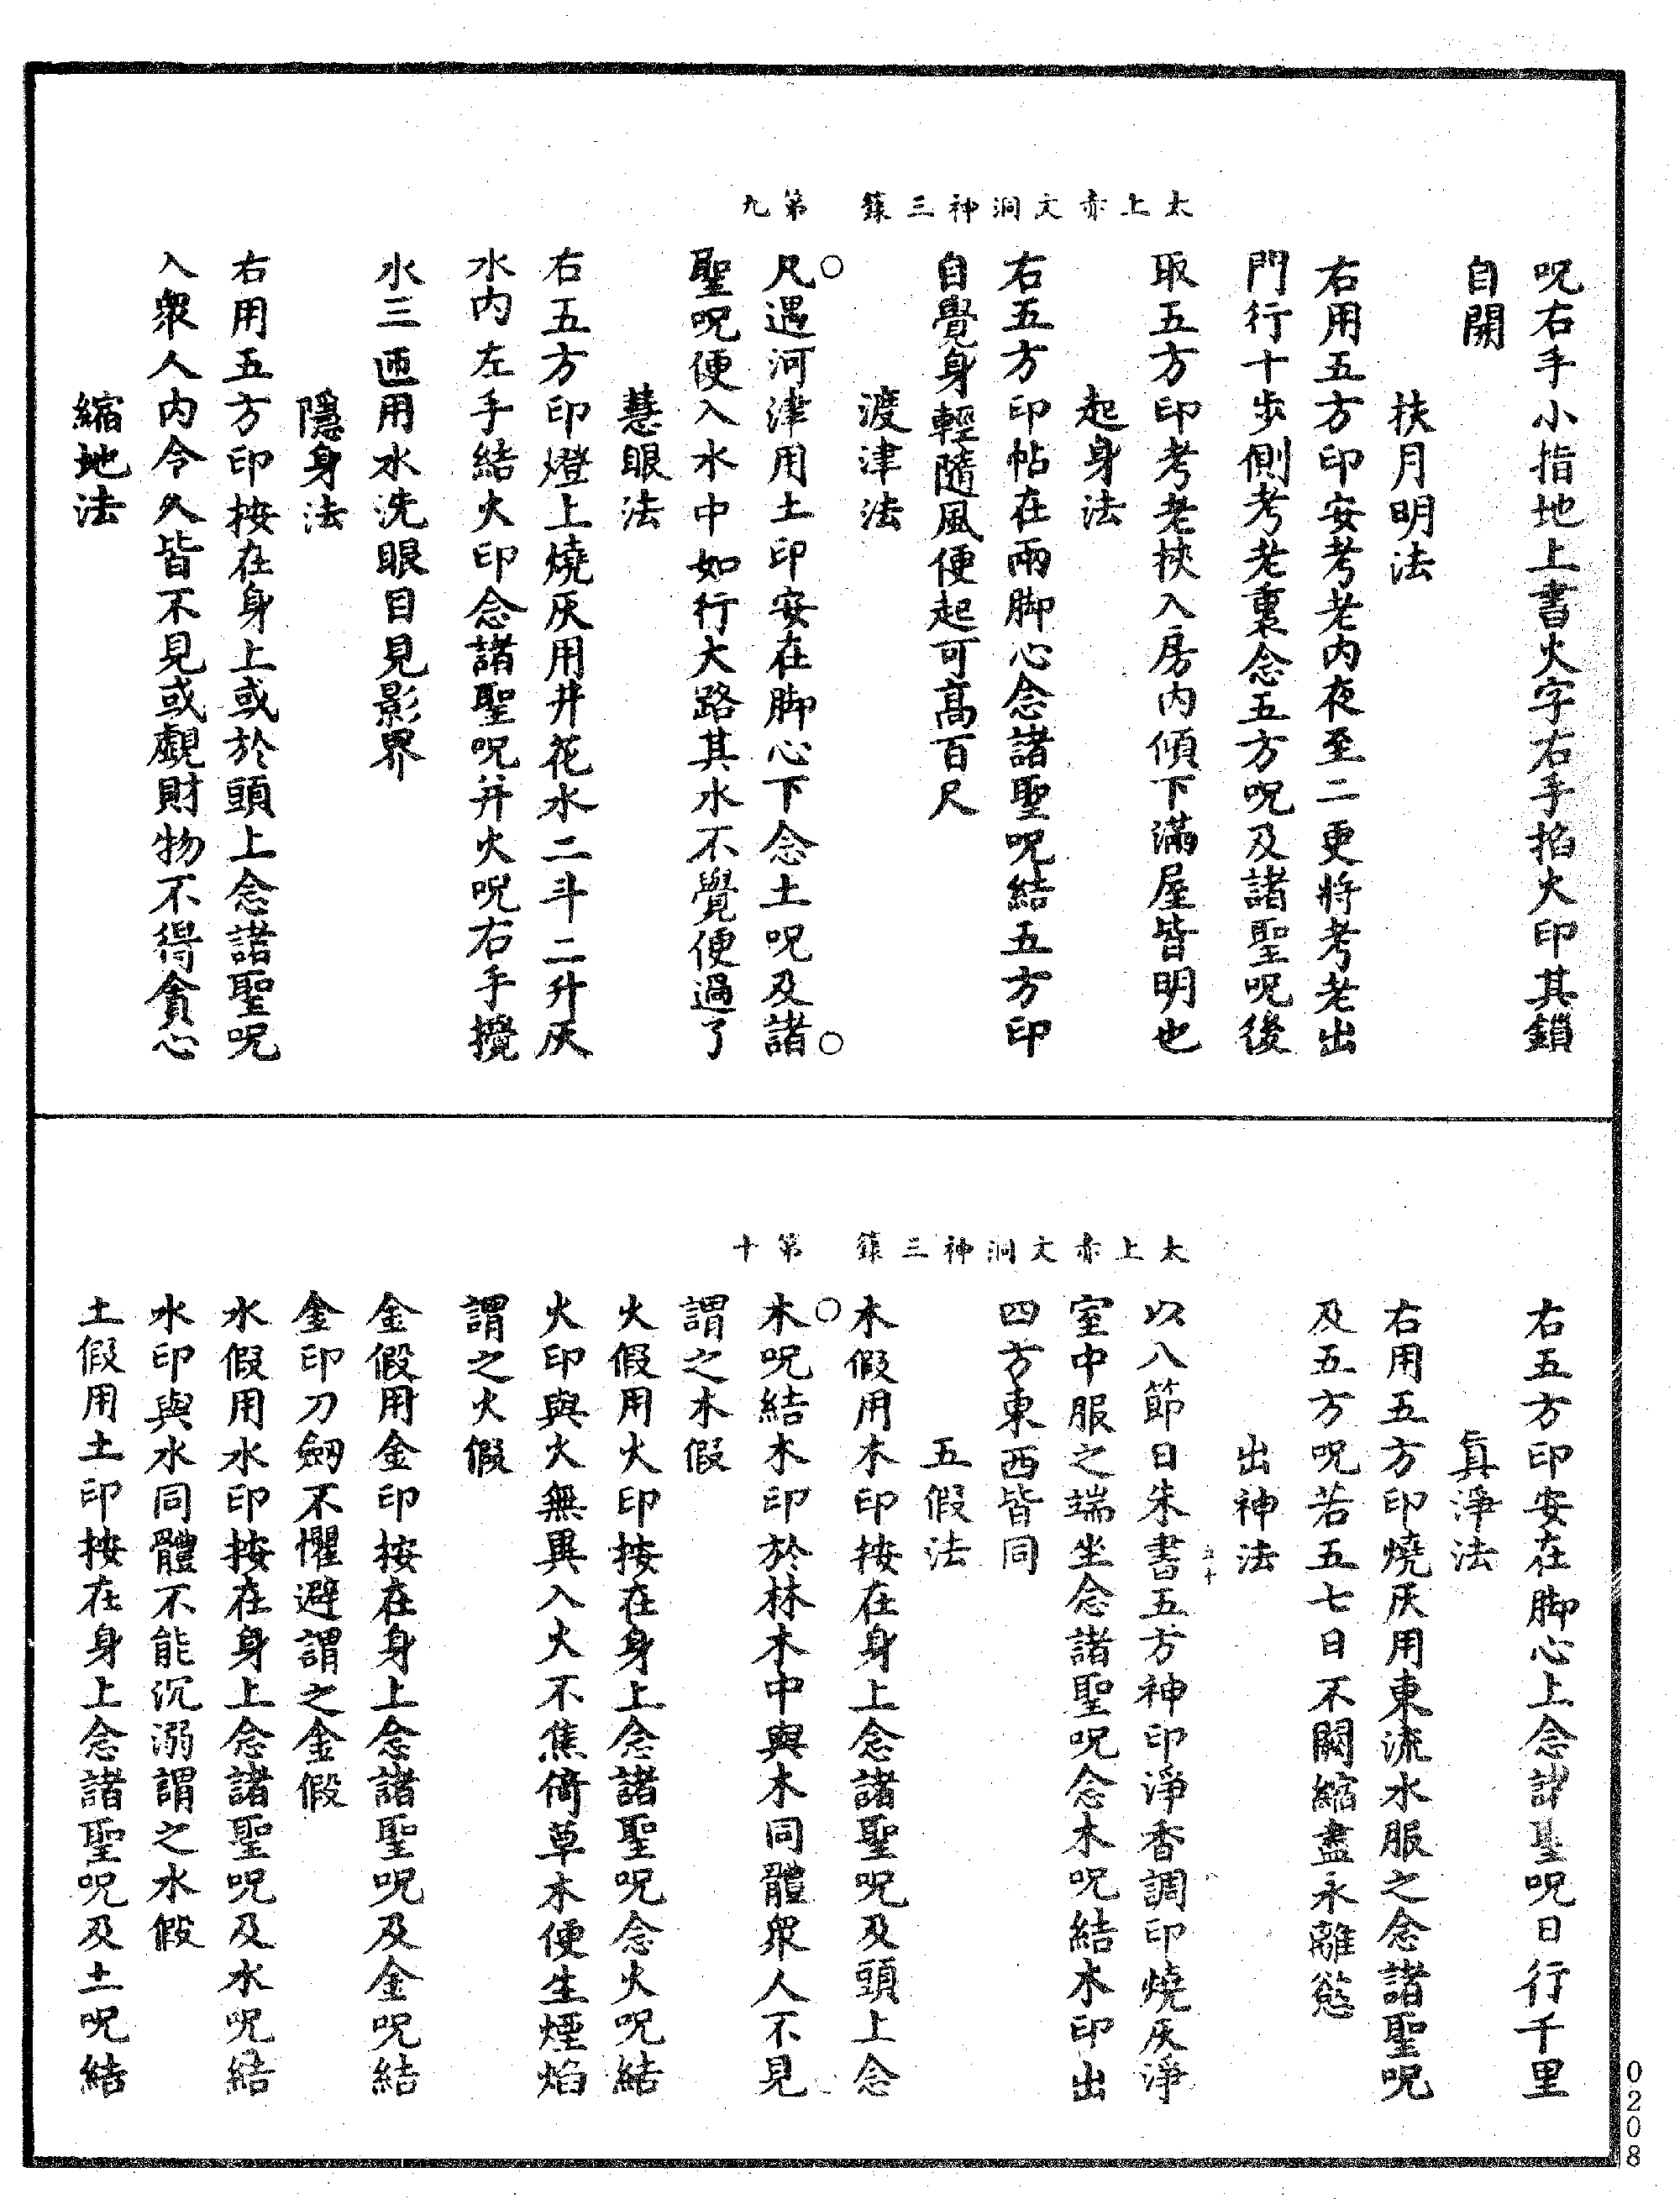 呪右手小指地上書火字右手掐火印其鎖
自開
扶月明法
右用五方印安考老內夜至二更將考老出
門行十步側考老裏念五方呪及諸聖呪後
取五方印考老挾入房內傾下滿屋皆明也
起身法
右五方印帖在兩脚心念諸聖呪結五方印
自覺身輕隨風便起可高百尺
渡津法
太上赤文洞神三籙 第九
凡遇河津用土印安在脚心下念土呪及諸
聖呪便入水中如行大路其水不覺便過了
慧眼法
右五方印燈上燒灰用井花水二斗二升灰
水內左手結火印念諸聖呪并火呪右手攪
水三匝用水洗眼目見影界
隱身法
右用五方印按在身上或於頭上念諸聖呪
入衆人內令久皆不見或覷財物不得貪心
縮地法
右五方印安在脚心上念諸聖呪日行千里
眞淨法
右用五方印燒灰用東流水服之念諸聖呪
及五方呪若五七日不闕縮盡永離慾
出神法
以八節日朱書五方神印淨香調印燒灰淨
室中服之端坐念諸聖呪念木呪結木印出
四方東西皆同
五假法
木假用木印按在身上念諸聖呪及頭上念
太上赤文洞神三籙 第十
木呪結木印於林木中與木同體衆人不見
謂之木假
火假用火印按在身上念諸聖呪念火呪結
火印與火無異入火不焦倚草木便生煙焰
謂之火假
金假用金印按在身上念諸聖呪及金呪結
金印刀劒不懼避謂之金假
水假用水印按在身上念諸聖呪及水呪結
水印與水同體不能沉溺謂之水假
土假用土印按在身上念諸聖呪及土呪結
0208